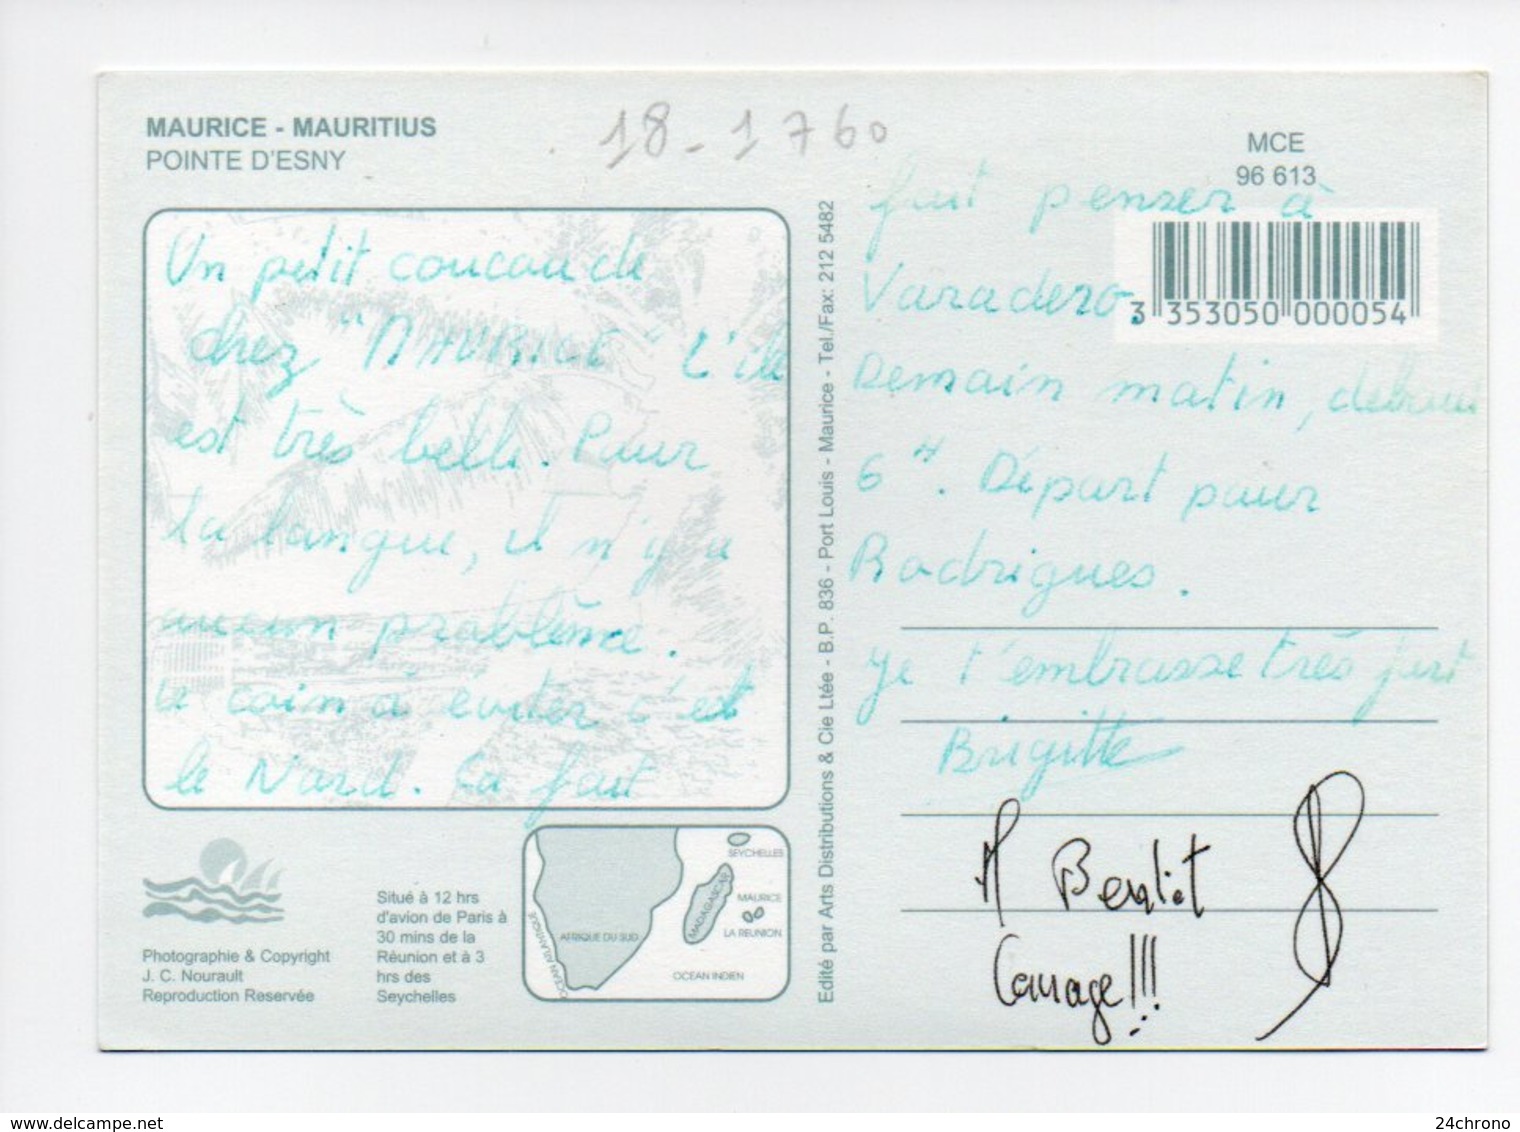 MAURICE - MAURITIUS
POINTE D'ESNY
18-1760
MCE
96 613
3 353050 000054
Un petit coucou de
chez "MAURICE" L'île
est très belle. Pour
la langue, il n'y a
aucun problème.
le coin à éviter c'est
le Nord. Ca fait
fait penser à
Varadero.
Demain matin, debout
6H. Départ pour
Rodrigues.
Je t'embrasse très fort
Brigitte
Courage!!!
Edité par Arts Distributions & Cie Ltée - B.P. 836 - Port Louis - Maurice - Tel./Fax: 212 5482
Photographie & Copyright
J. C. Nourault
Reproduction Reservée
Situé à 12 hrs
d'avion de Paris à
30 mins de la
Réunion et à 3
hrs des
Seychelles
SEYCHELLES
MADAGASCAR
MAURICE
LA REUNION
AFRIQUE DU SUD
OCEAN ATLANTIQUE
OCEAN INDIEN
www.delcampe.net
24chrono